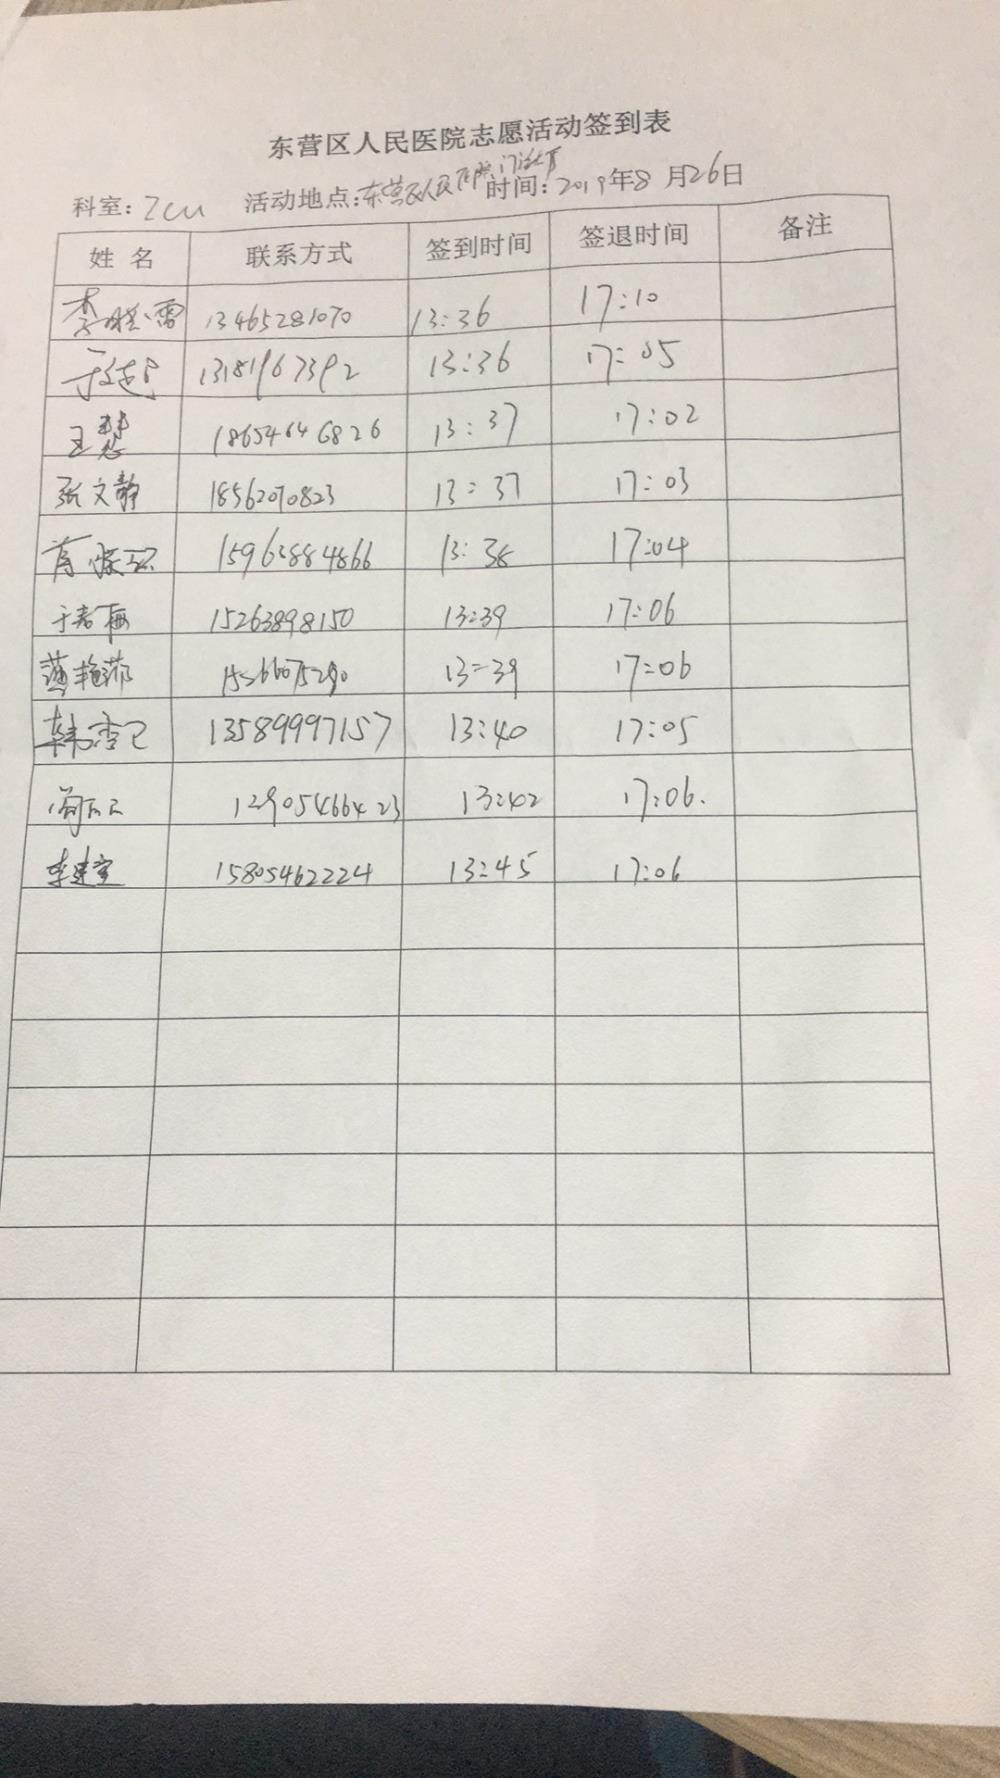 东营区人民医院志愿活动签到表
科室: Icu 活动地点: 东营区人民医院门诊 时间: 2019年8月26日
姓 名 联系方式 签到时间 签退时间 备注
李晓雷 13465281070 13:36 17:10
13181967392 13:36 17:05
王慧 18654646826 13:37 17:02
张文静 18562070823 13:37 17:03
15963884866 13:38 17:04
于春梅 15263898150 13:39 17:06
薄艳萍 13:39 17:06
韩雪飞 13589997157 13:40 17:05
12905466423 13:42 17:06.
李建宝 15805462224 13:45 17:06